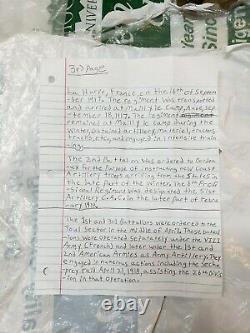 UNIVER
3rd Page
La Havre, France, on the 16th of Septem-
ber 1917. The regiment was transported
and arrived at Mailly le Camp, Aube, Sep-
tember 18, 1917. The regiment
remained at Mailly le Camp during the
winter, obtained artillery, material, wagons
trucks, etc., and engaged in intensive train
ing.
The 2nd Battalion was ordered to
for the purpose of instructing new Coast
Artillery troops arriving from the States in
the late part of the winter. The 6th Prov-
isional Regiment was designated the 51st
Artillery C.A.C. in the later part of Febru-
ary 1918.
The 1st and 3rd Battalions were ordered to the
Toul Sector in the middle of April. These battal
ions were operated separately under the VIII
Army (French) and later under the 1st and
2nd American Armies as Army Artillery. They
engaged in numerous actions including the Seche
prey Raid April 21, 1918, assisting the 26th Divis
ion in that operation.